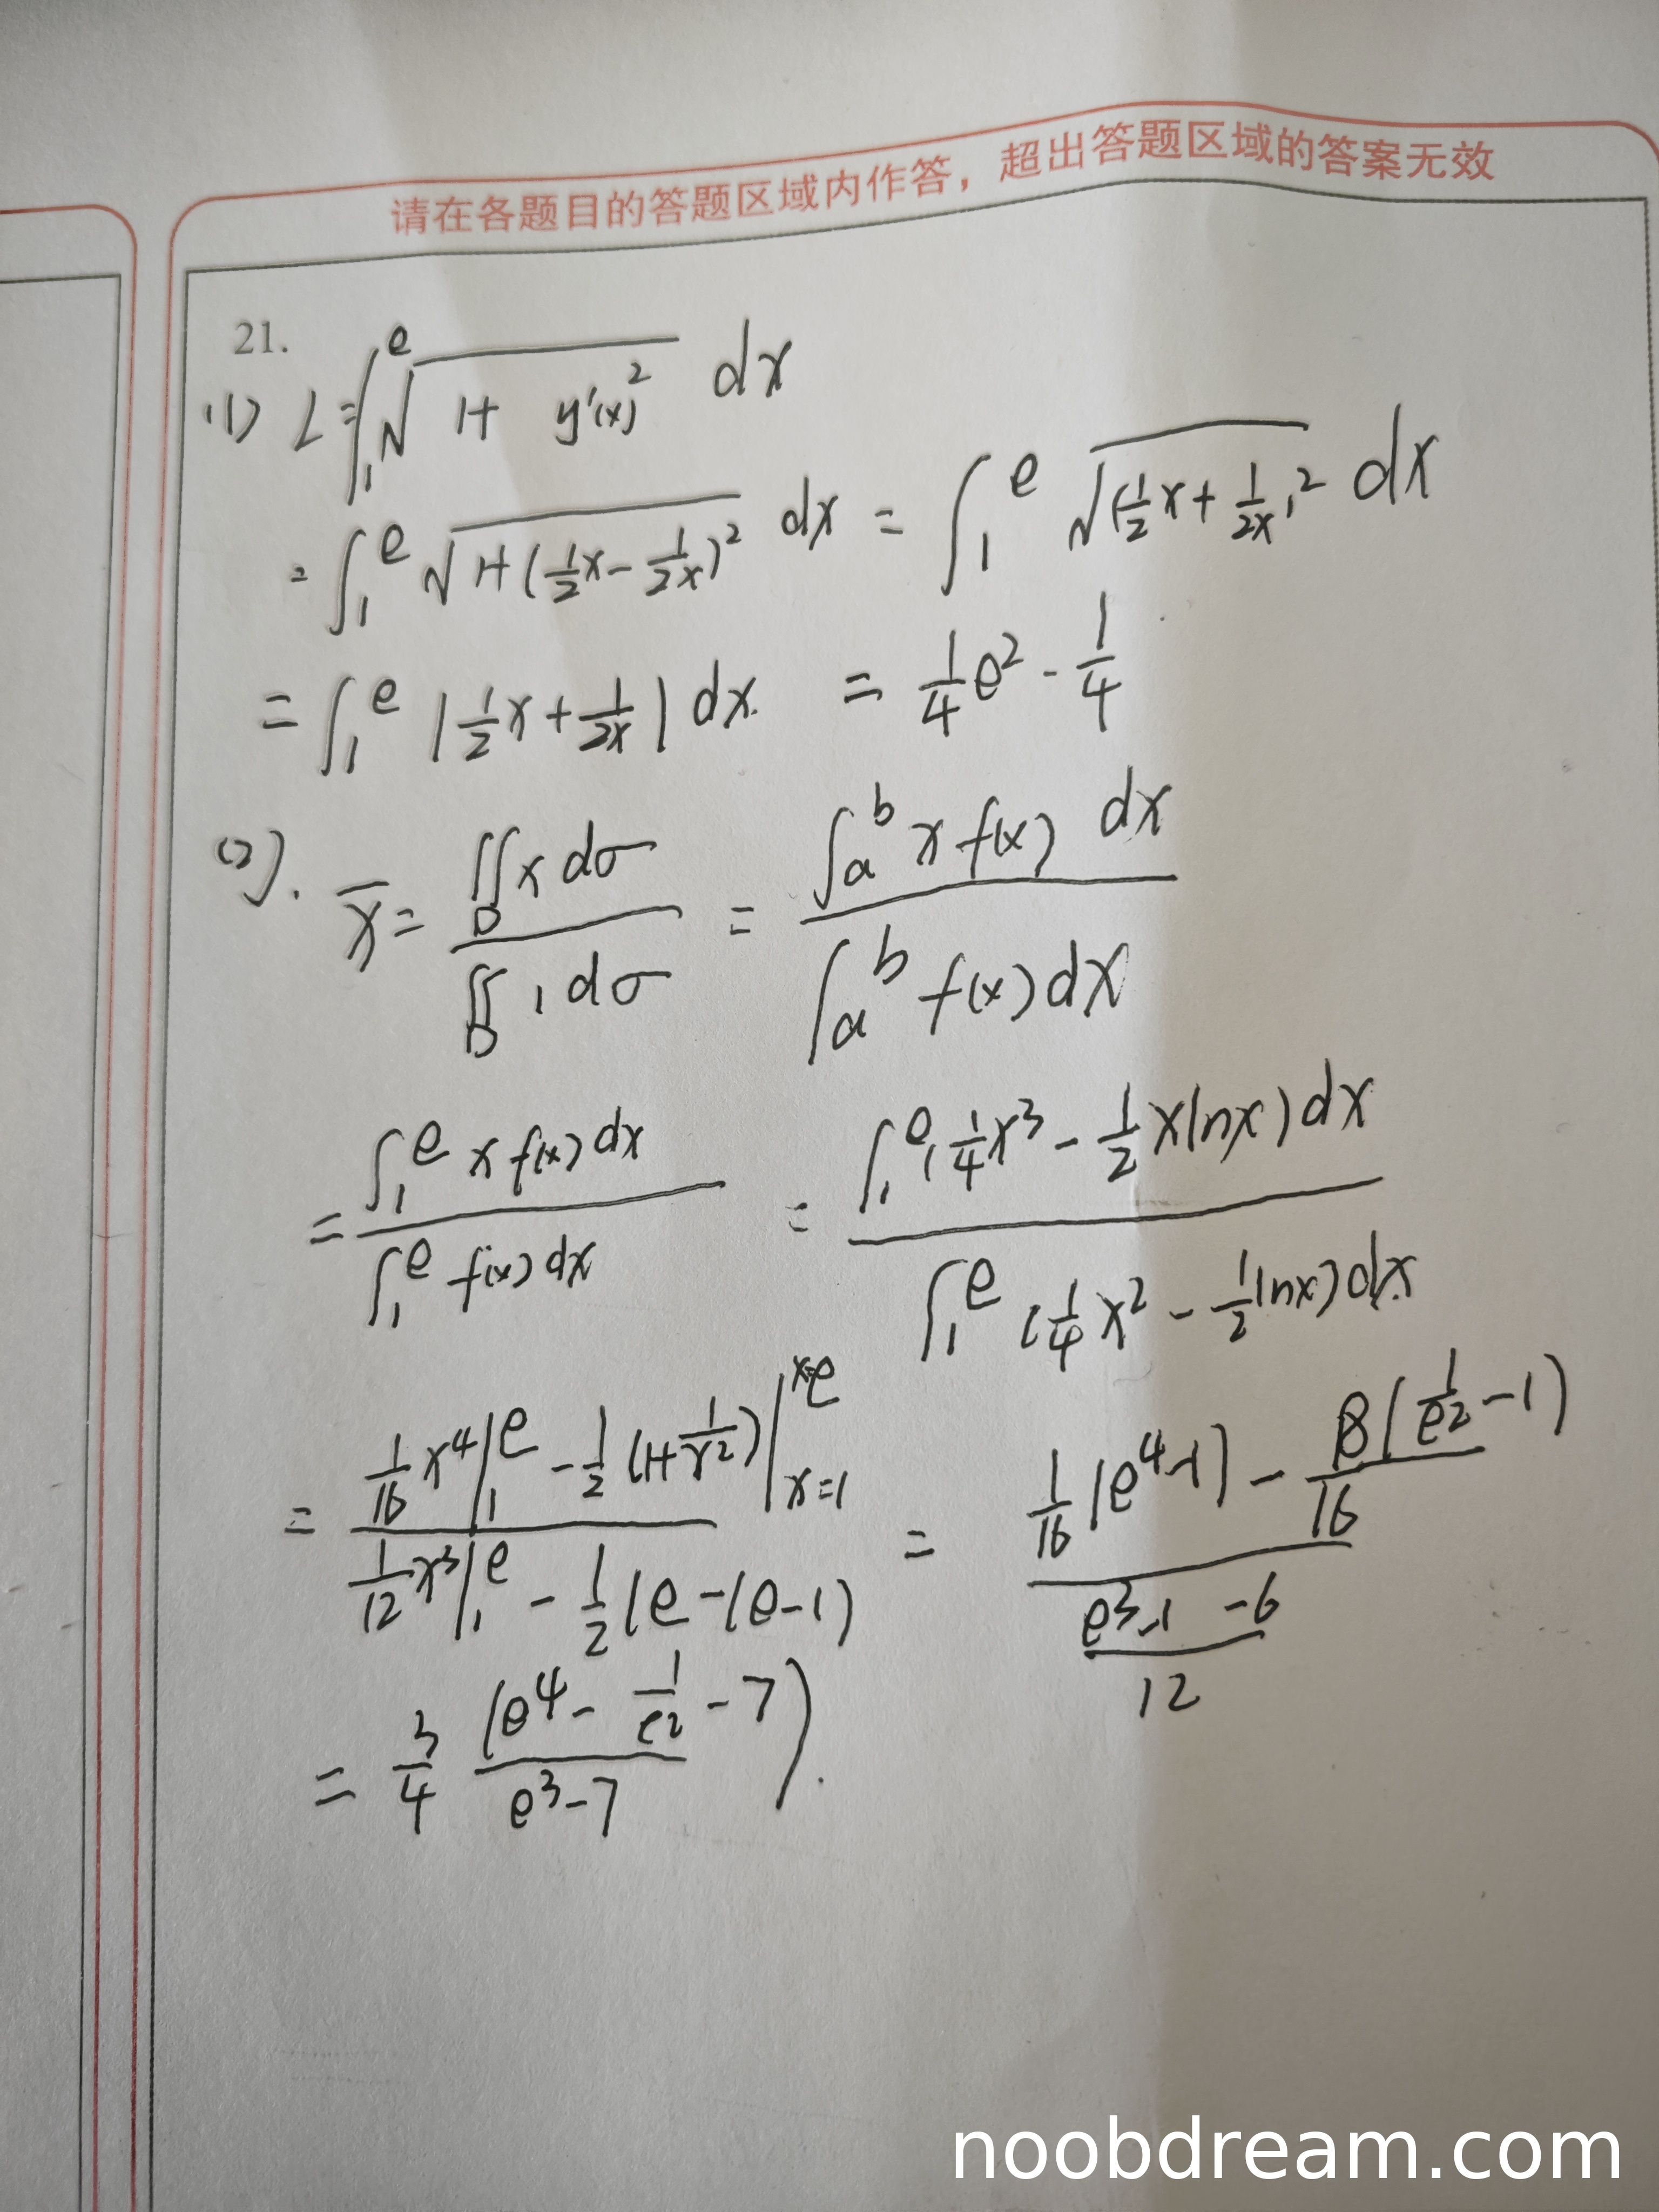 请在各题目的答题区域内作答，超出答题区域的答案无效
21.
(1) L=∫₁^e √(1+ y'(x)²) dx
= ∫₁^e √(1+(½x-1/(2x))²) dx = ∫₁^e √((½x+1/(2x))²) dx
= ∫₁^e |½x+1/(2x)| dx. = ¼e² - ¼
(2). x̄ = ∬_D x dσ / ∬_D 1 dσ = ∫_a^b x f(x) dx / ∫_a^b f(x) dx
= ∫₁^e x f(x) dx / ∫₁^e f(x) dx = ∫₁^e (¼x³ - ½x lnx) dx / ∫₁^e (¼x² - ½lnx) dx
= (1/16 x⁴|₁^e - ½(1+1/x²)|_{x=1}^{x=e}) / (1/12 x³|₁^e - ½(e-(e-1)) = (1/16 (e⁴-1) - 8(1/e²-1)/16) / ((e³-1-6)/12)
= 3/4 (e⁴ - 1/e² - 7)/(e³-7).
noobdream.com